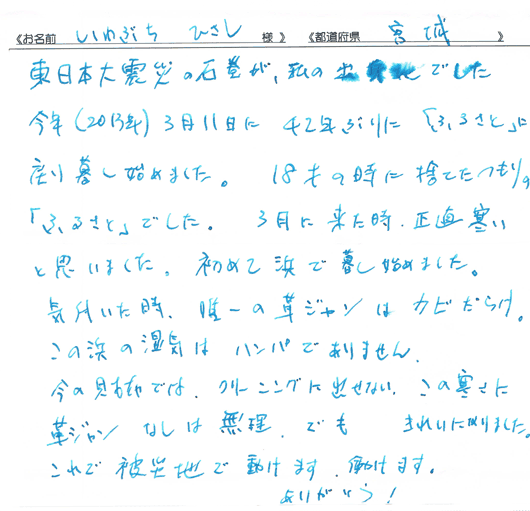 《お名前 いわぶち ひさし 様》 《都道府県 宮城 》
東日本大震災の石巻が、私の出身地でした
今年(2013年)3月11日に 42年ぶりに「ふるさと」に
戻り暮し始めました。 18才の時に捨てたつもりの
「ふるさと」でした。 3月に来た時、正直寒い
と思いました。初めて浜で暮し始めました。
気付いた時、唯一の革ジャンはカビだらけ。
この浜の湿気は ハンパでありません。
今の見た物では、クリーニングに出せない、この寒さに
革ジャン なしは無理、でも きれいになりました。
これで被災地で動けます、働けます。
ありがとう!